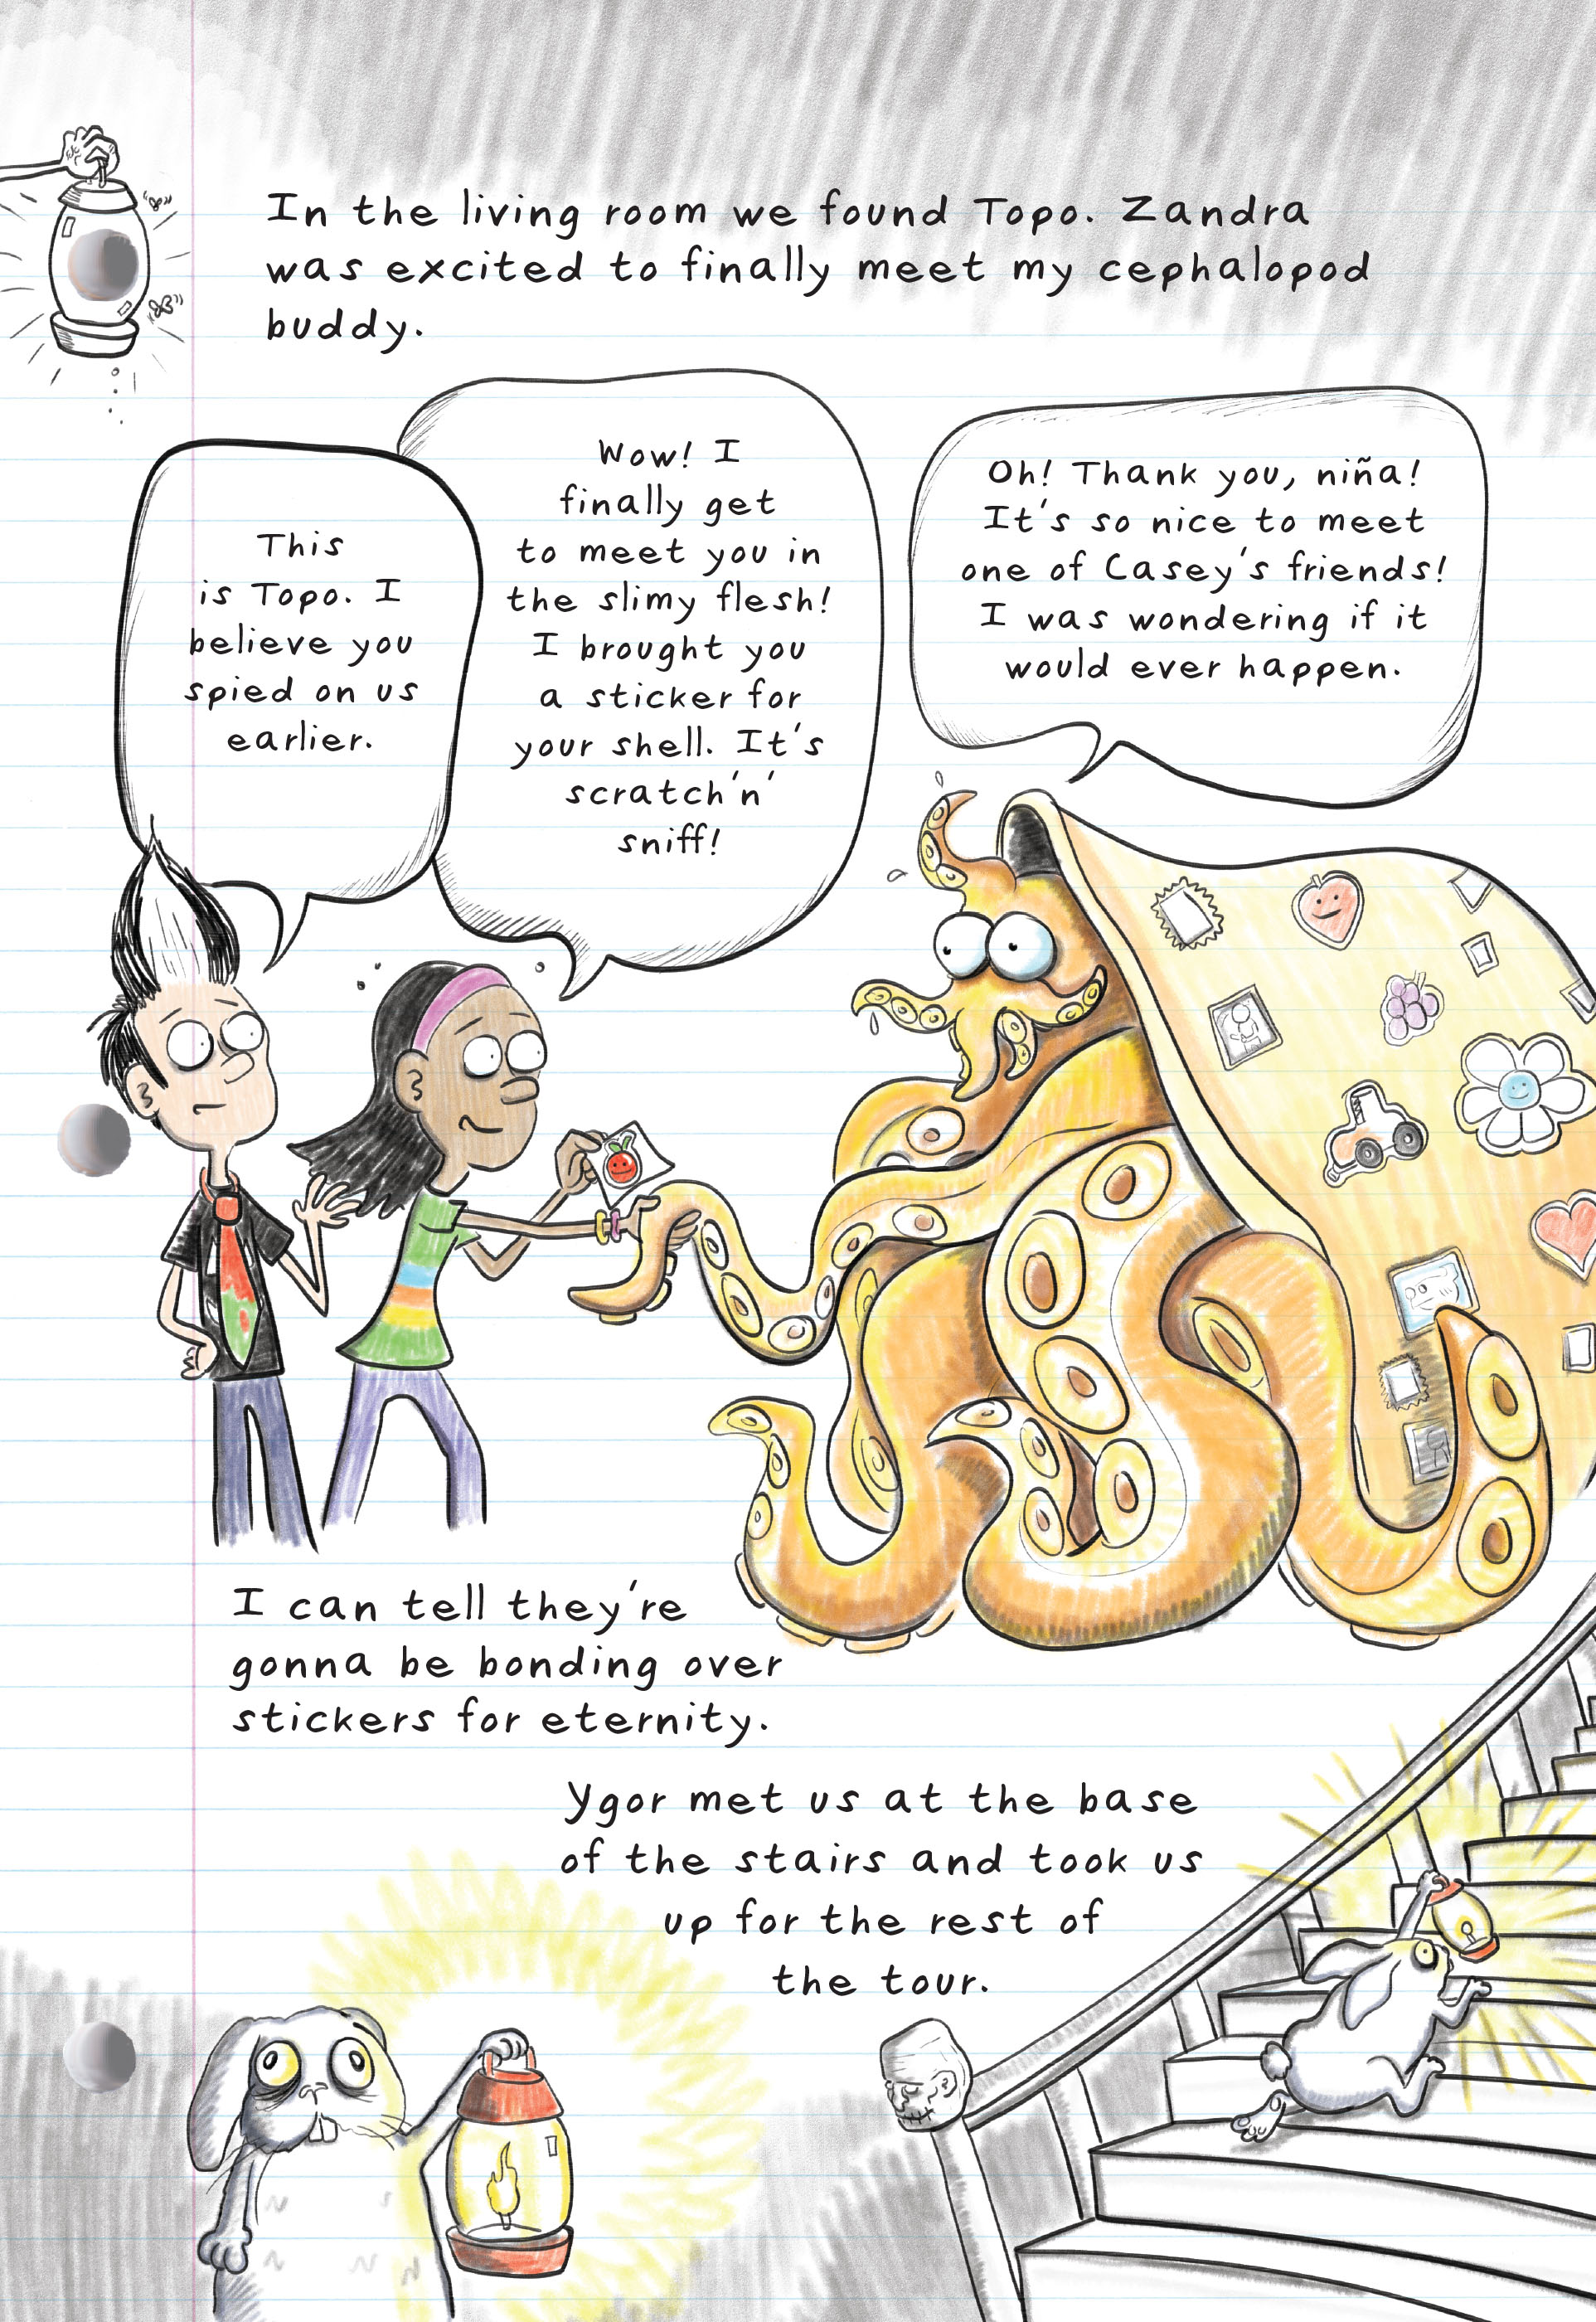 In the living room we found Topo. Zandra
was excited to finally meet my cephalopod
buddy.
This
is Topo. I
believe you
spied on us
earlier.
Wow! I
finally get
to meet you in
the slimy flesh!
I brought you
a sticker for
your shell. It's
scratch'n'
sniff!
Oh! Thank you, niña!
It's so nice to meet
one of Casey's friends!
I was wondering if it
would ever happen.
I can tell they're
gonna be bonding over
stickers for eternity.
Ygor met us at the base
of the stairs and took us
up for the rest of
the tour.